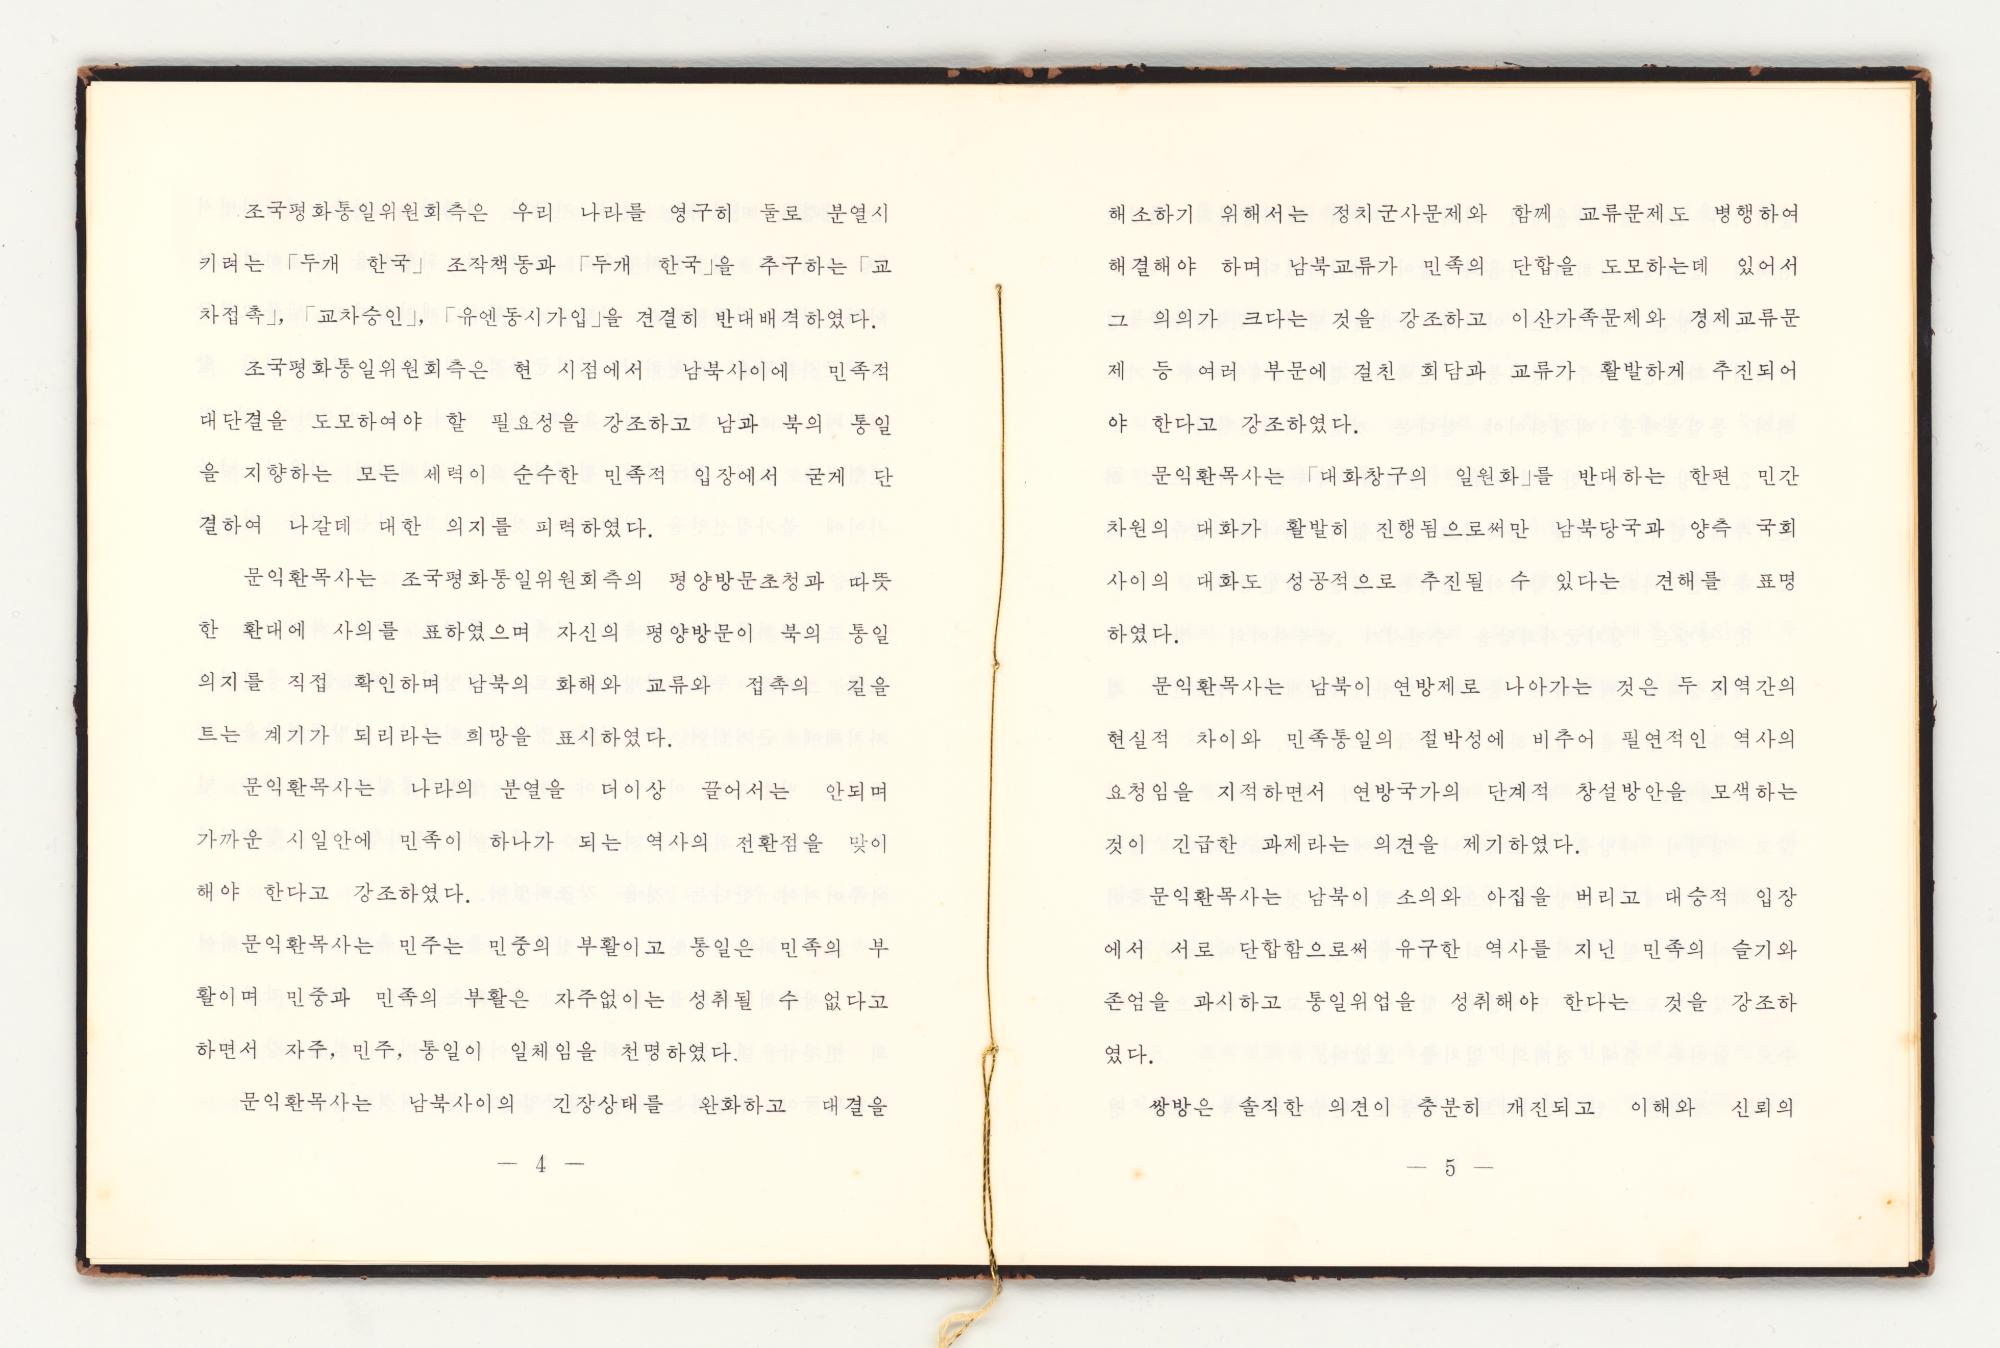 조국평화통일위원회측은 우리 나라를 영구히 둘로 분열시
키려는 「두개 한국」 조작책동과 「두개 한국」을 추구하는 「교
차접촉」, 「교차승인」, 「유엔동시가입」을 견결히 반대배격하였다.
조국평화통일위원회측은 현 시점에서 남북사이에 민족적
대단결을 도모하여야 할 필요성을 강조하고 남과 북의 통일
을 지향하는 모든 세력이 순수한 민족적 입장에서 굳게 단
결하여 나갈데 대한 의지를 피력하였다.
문익환목사는 조국평화통일위원회측의 평양방문초청과 따뜻
한 환대에 사의를 표하였으며 자신의 평양방문이 북의 통일
의지를 직접 확인하며 남북의 화해와 교류와 접촉의 길을
트는 계기가 되리라는 희망을 표시하였다.
문익환목사는 나라의 분열을 더이상 끌어서는 안되며
가까운 시일안에 민족이 하나가 되는 역사의 전환점을 맞이
해야 한다고 강조하였다.
문익환목사는 민주는 민중의 부활이고 통일은 민족의 부
활이며 민중과 민족의 부활은 자주없이는 성취될 수 없다고
하면서 자주, 민주, 통일이 일체임을 천명하였다.
문익환목사는 남북사이의 긴장상태를 완화하고 대결을
— 4 —
해소하기 위해서는 정치군사문제와 함께 교류문제도 병행하여
해결해야 하며 남북교류가 민족의 단합을 도모하는데 있어서
그 의의가 크다는 것을 강조하고 이산가족문제와 경제교류문
제 등 여러 부문에 걸친 회담과 교류가 활발하게 추진되어
야 한다고 강조하였다.
문익환목사는 「대화창구의 일원화」를 반대하는 한편 민간
차원의 대화가 활발히 진행됨으로써만 남북당국과 양측 국회
사이의 대화도 성공적으로 추진될 수 있다는 견해를 표명
하였다.
문익환목사는 남북이 연방제로 나아가는 것은 두 지역간의
현실적 차이와 민족통일의 절박성에 비추어 필연적인 역사의
요청임을 지적하면서 연방국가의 단계적 창설방안을 모색하는
것이 긴급한 과제라는 의견을 제기하였다.
문익환목사는 남북이 소의와 아집을 버리고 대승적 입장
에서 서로 단합함으로써 유구한 역사를 지닌 민족의 슬기와
존엄을 과시하고 통일위업을 성취해야 한다는 것을 강조하
였다.
쌍방은 솔직한 의견이 충분히 개진되고 이해와 신뢰의
— 5 —